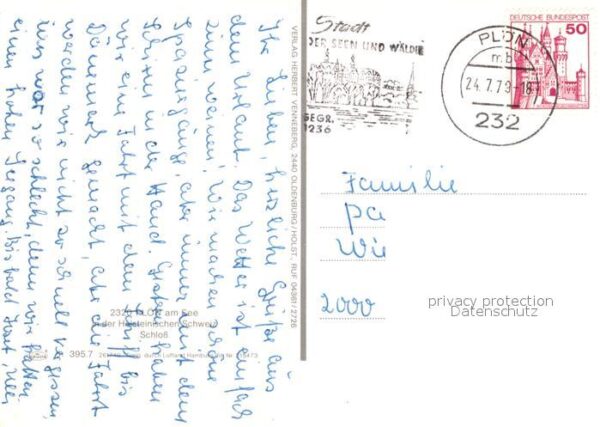 Ihr Lieben, herzliche Grüße aus
dem Urlaub. Das Wetter ist einfach
zum weinen. Wir machen schöne
Spaziergänge, aber immer mit dem
Schirm in der Hand. Gestern haben
wir eine Fahrt mit dem Schiff bis
Dänemark gemacht, aber die Fahrt
werden wir nicht so schnell vergessen,
uns war so schlecht, denn wir hatten
einen hohen Seegang. Bis bald
VERLAG HERBERT VENNEBERG, 2440 OLDENBURG/HOLST., RUF 04361/2726
2320 PLÖN am See
in der Holsteinischen Schweiz
Schloß
395.7
Stadt
DER SEEN UND WÄLDER
GEGR.
1236
PLÖN
24.7.79-18
232
DEUTSCHE BUNDESPOST
50
Familie
pa
Wie
2000
privacy protection
Datenschutz